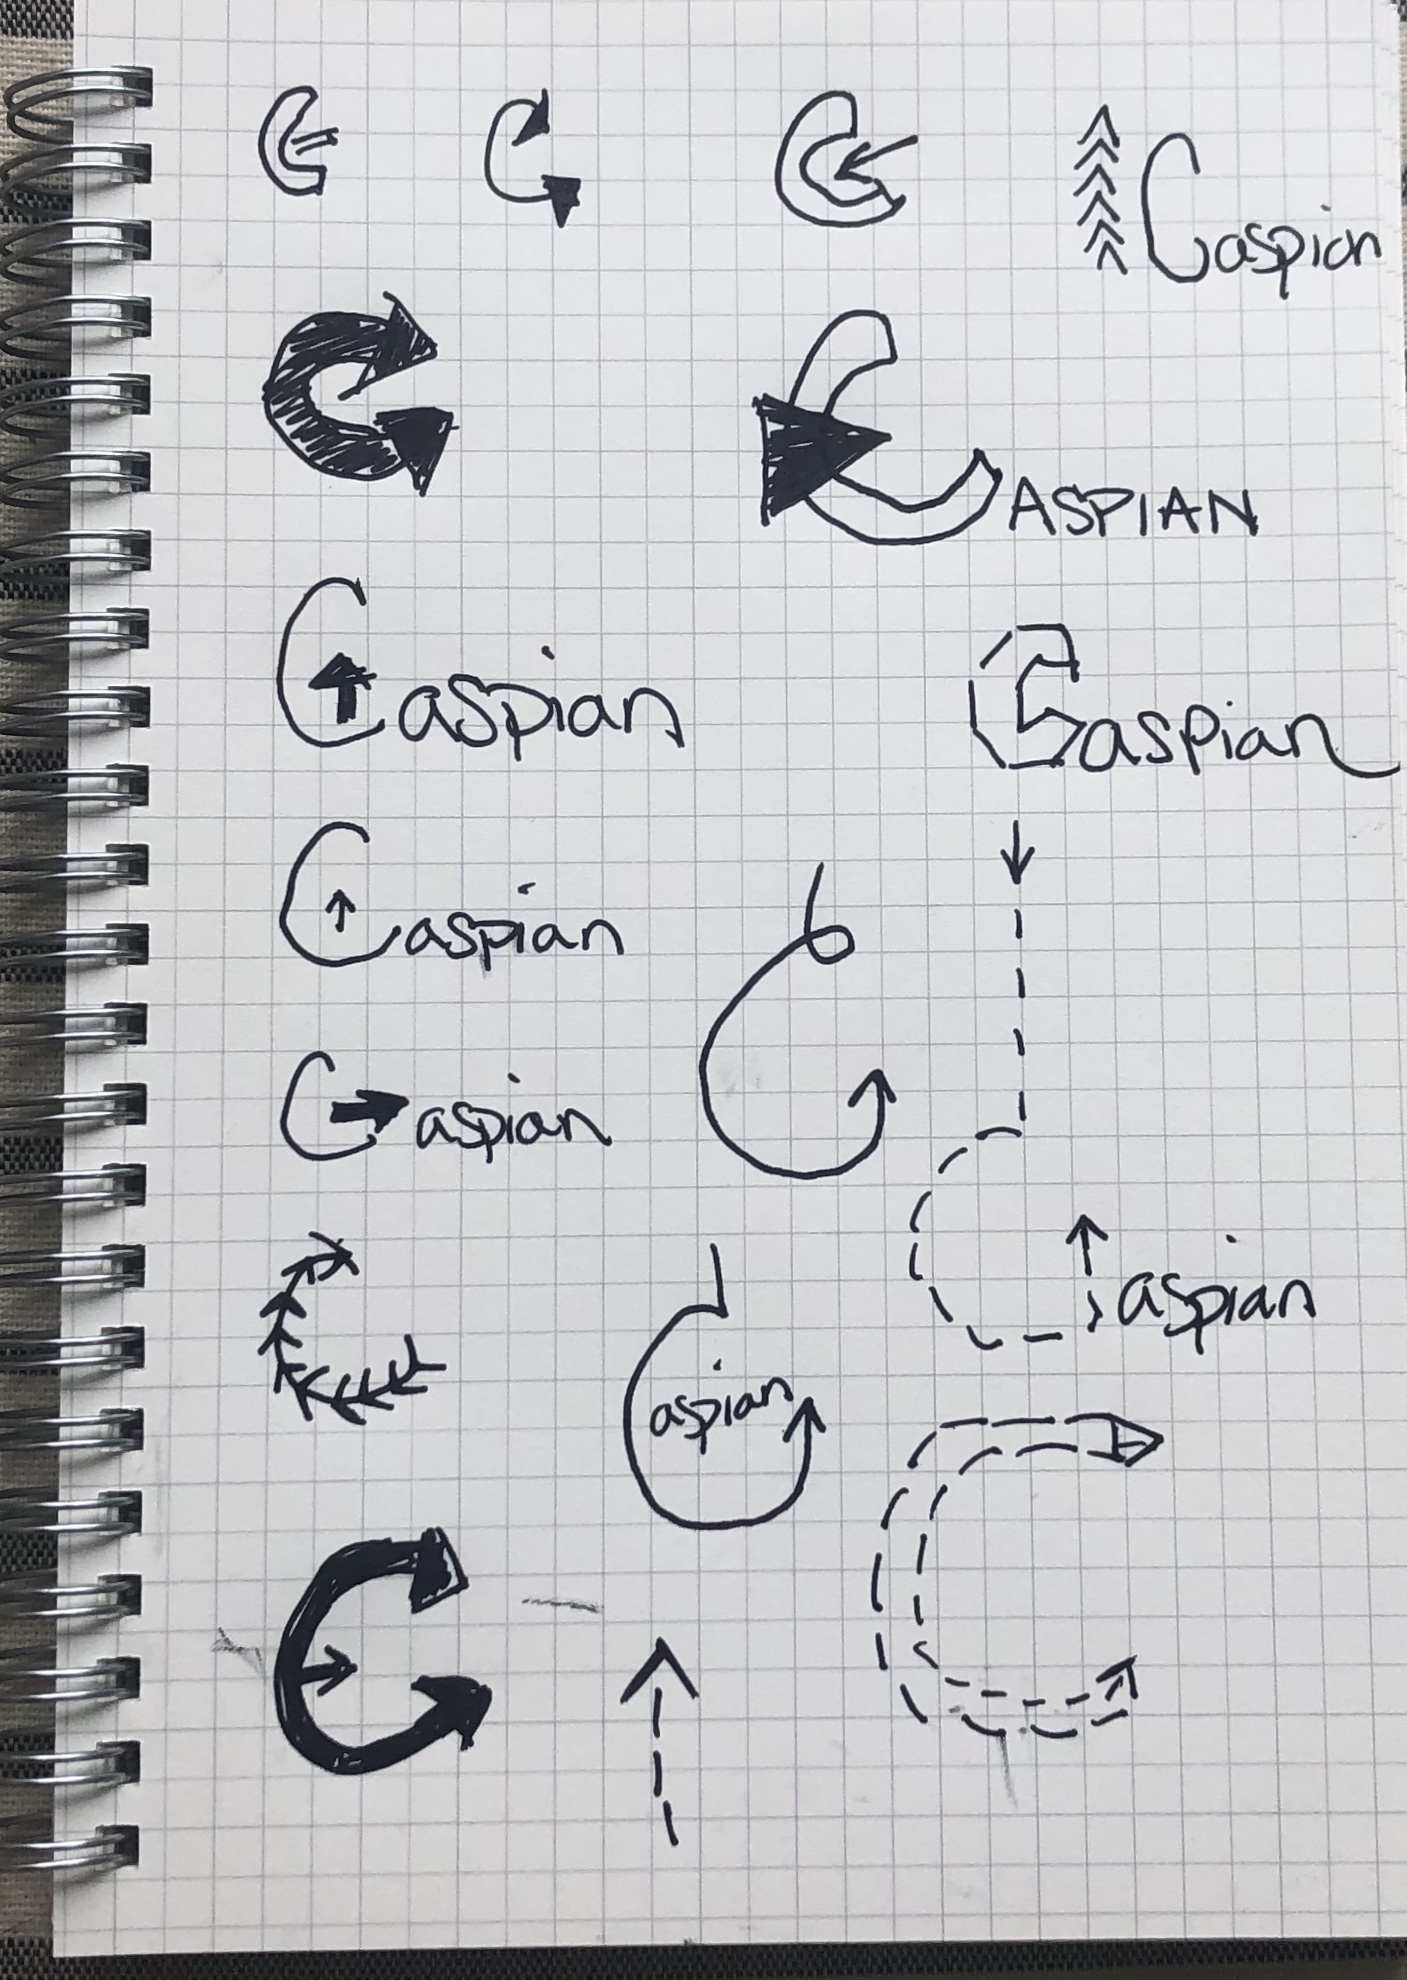 Caspian
CASPIAN
Caspian
Caspian
Caspian
Caspian
Caspian
aspian